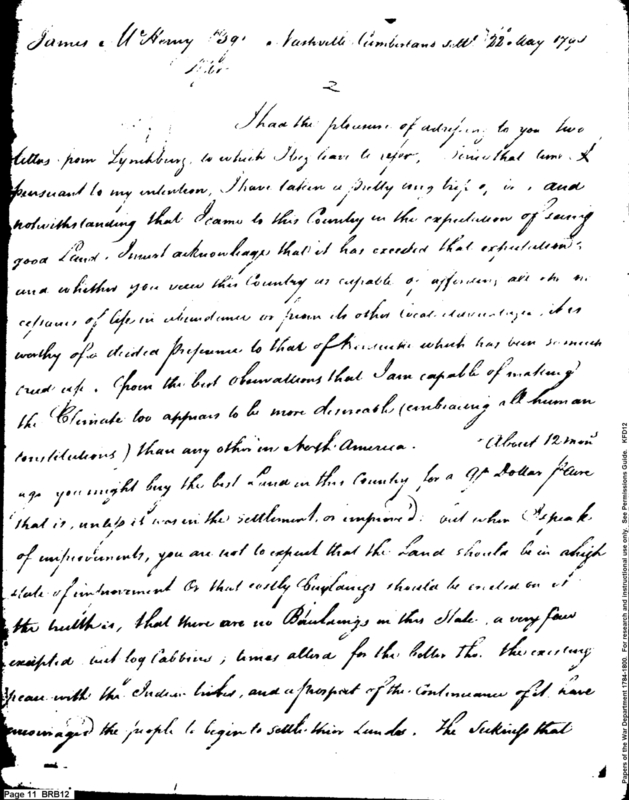 James McHenry Esqr Nashville Cumberland Settt 22d May 179
Sir
2
I had the pleasure of adressing to you two
letters from Lynchburg to which I beg leave to refer, Since that time I
pursuant to my intention, I have taken a pretty long trip and
notwithstanding that I came to this Country in the expectation of seeing
good Land. I must acknowledge that it has exceeded that expectation
and whether you view this Country as capable of affording all the ne
cessaries of life in abundance or from its other local advantages, it is
worthy of a decided preference to that of Kentuckie which has been so much
cried up. From the best observations that I am capable of making
the Climate too appears to be more desireable (embracing all human
constitutions) than any other in North America. About 12 mons
ago you might buy the best Land in this Country for a qr Dollar pr Acre
that is, unless it was in the settlement, or improved: but when I speak
of improvements, you are not to expect that the Land should be in a high
state of improvement Or that costly Buildings should be erected on it
the truth is, that there are no Buildings in this State, a very few
excepted but log Cabbins; times alterd for the better tho. the existing
peace with the Indian tribes, and a prospect of the continuance of it have
encouraged the people to begin to settle their Landes. The that
Page 11 BRB12
Papers of the War Department 1784-1800. For research and instructional use only. See Permissions Guide. KFD12